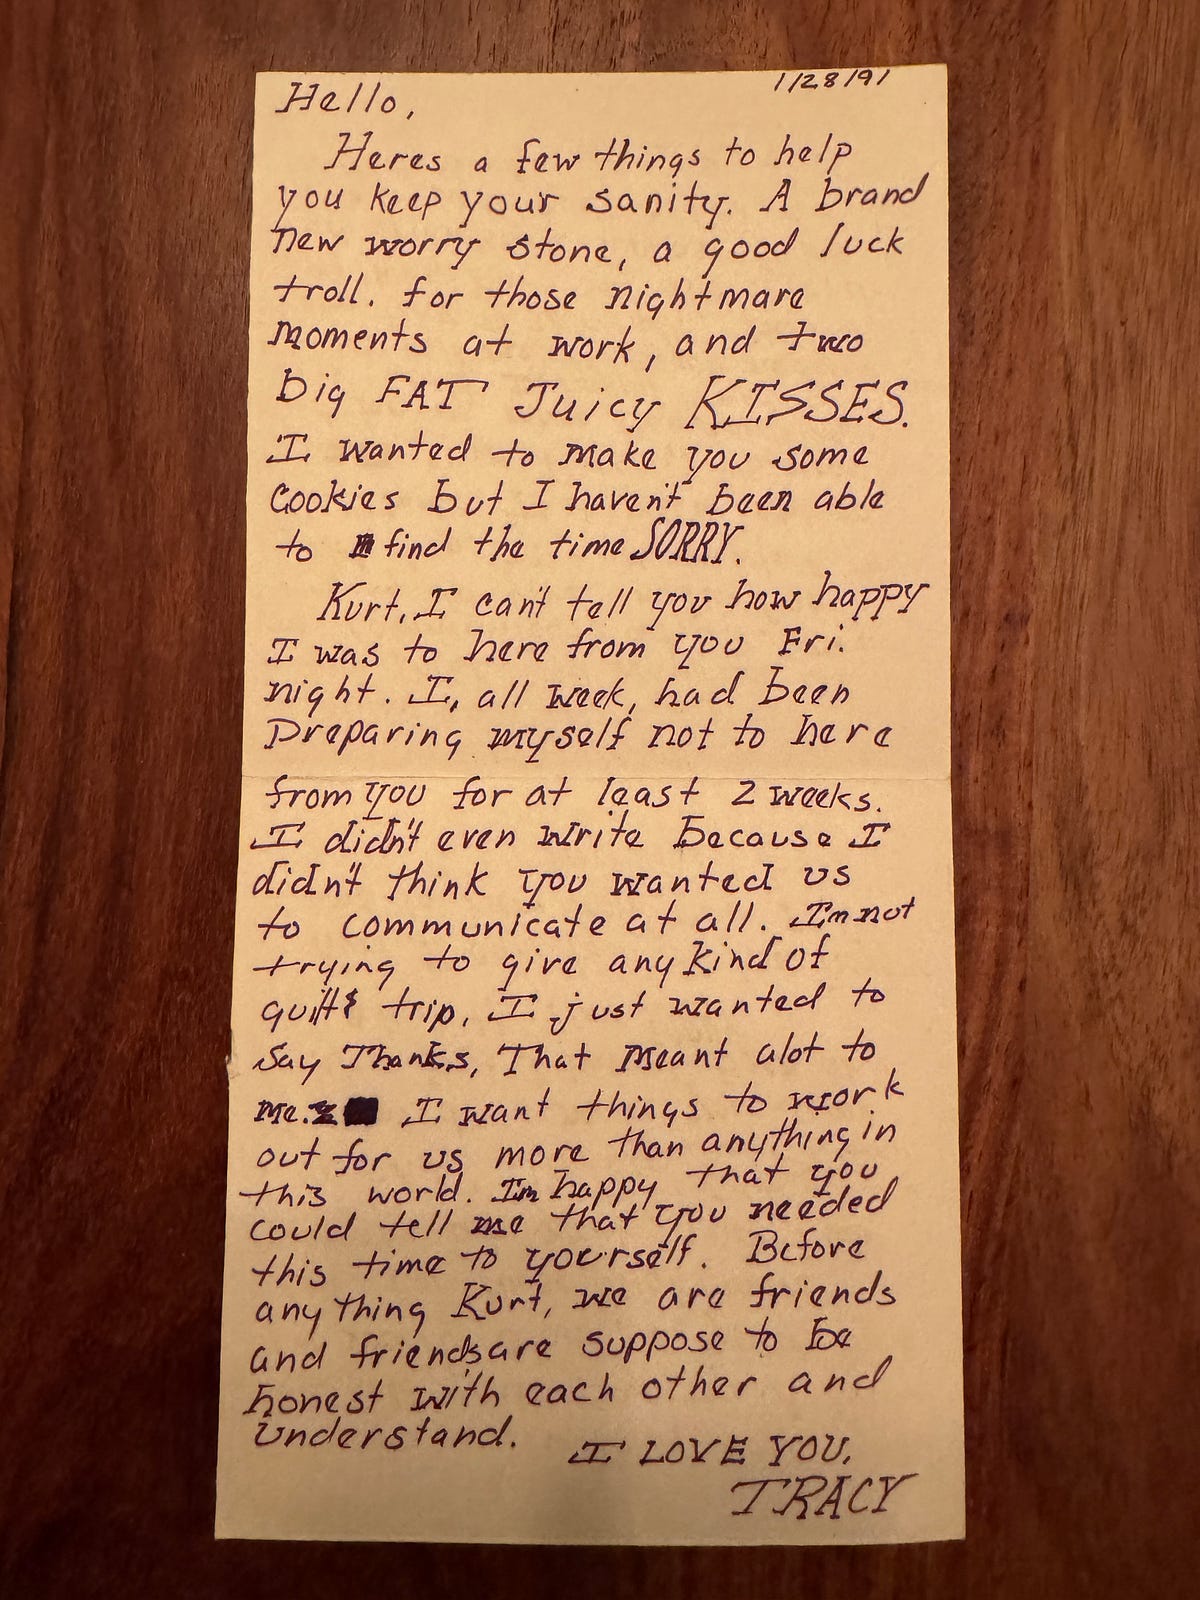 1/28/91
Hello,
Heres a few things to help
you keep your sanity. A brand
new worry stone, a good luck
troll. for those nightmare
moments at work, and two
big FAT Juicy KISSES.
I wanted to make you some
cookies but I haven't been able
to find the time SORRY.
Kurt, I can't tell you how happy
I was to here from you Fri.
night. I, all week, had been
Preparing myself not to here
from you for at least 2 weeks.
I didn't even write because I
didn't think you wanted us
to communicate at all. I'm not
trying to give any kind of
guilt trip, I just wanted to
say Thanks, That meant alot to
me. I want things to work
out for us more than anything in
this world. I'm happy that you
could tell me that you needed
this time to yourself. Before
anything Kurt, we are friends
and friends are suppose to be
honest with each other and
understand.
I LOVE YOU,
TRACY